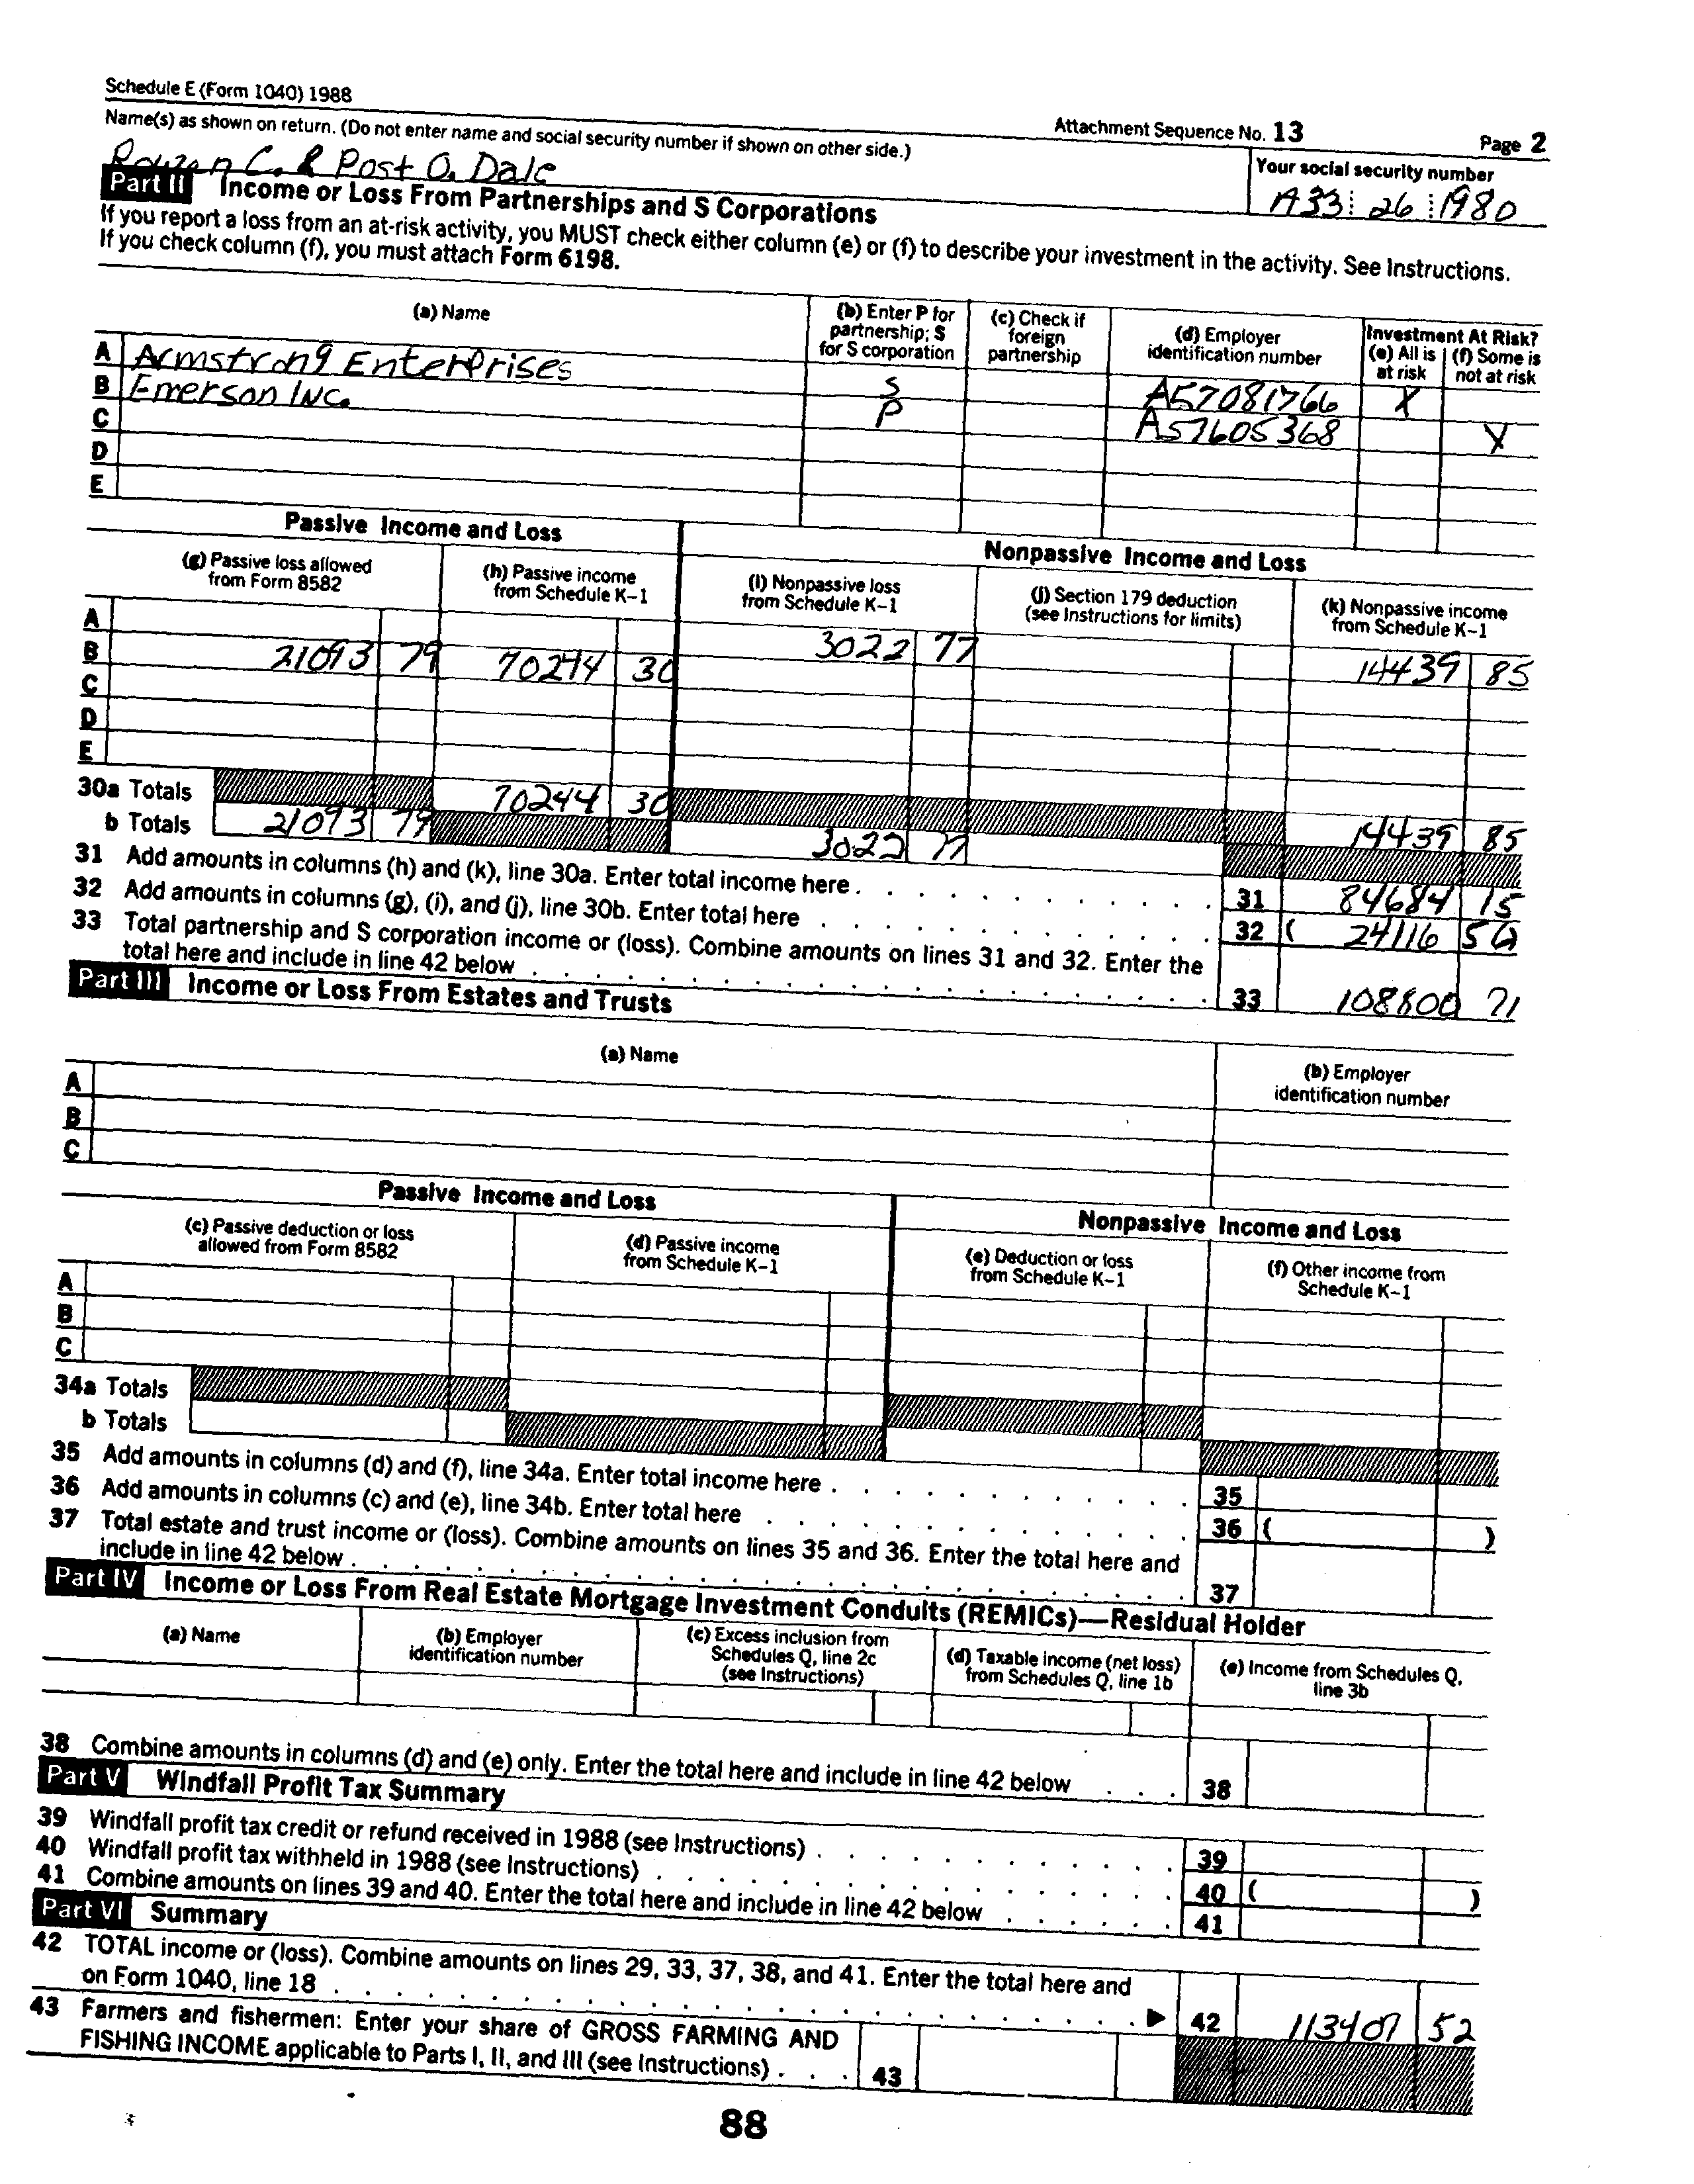 Schedule E (Form 1040) 1988
Attachment Sequence No. 13
Page 2
Name(s) as shown on return. (Do not enter name and social security number if shown on other side.)
Your social security number
C. & Post O. Dale
A33 26 1980
Part II Income or Loss From Partnerships and S Corporations
If you report a loss from an at-risk activity, you MUST check either column (e) or (f) to describe your investment in the activity. See Instructions.
If you check column (f), you must attach Form 6198.
(a) Name
(b) Enter P for partnership; S for S corporation
(c) Check if foreign partnership
(d) Employer identification number
Investment At Risk?
(e) All is at risk
(f) Some is not at risk
A Armstrong Enterprises S A57081766 X
B Emerson Inc. P A57605368 X
C
D
E
Passive Income and Loss
Nonpassive Income and Loss
(g) Passive loss allowed from Form 8582
(h) Passive income from Schedule K-1
(i) Nonpassive loss from Schedule K-1
(j) Section 179 deduction (see Instructions for limits)
(k) Nonpassive income from Schedule K-1
A 3022 77 14439 85
B 21093 79 70244 30
C
D
E
30a Totals 70244 30 14439 85
b Totals 21093 79 3022 77
31 Add amounts in columns (h) and (k), line 30a. Enter total income here 31 84684 15
32 Add amounts in columns (g), (i), and (j), line 30b. Enter total here 32 ( 24116 56)
33 Total partnership and S corporation income or (loss). Combine amounts on lines 31 and 32. Enter the
total here and include in line 42 below 33 108800 71
Part III Income or Loss From Estates and Trusts
(a) Name
(b) Employer identification number
A
B
C
Passive Income and Loss
Nonpassive Income and Loss
(c) Passive deduction or loss allowed from Form 8582
(d) Passive income from Schedule K-1
(e) Deduction or loss from Schedule K-1
(f) Other income from Schedule K-1
A
B
C
34a Totals
b Totals
35 Add amounts in columns (d) and (f), line 34a. Enter total income here 35
36 Add amounts in columns (c) and (e), line 34b. Enter total here 36 ( )
37 Total estate and trust income or (loss). Combine amounts on lines 35 and 36. Enter the total here and
include in line 42 below 37
Part IV Income or Loss From Real Estate Mortgage Investment Conduits (REMICs)—Residual Holder
(a) Name
(b) Employer identification number
(c) Excess inclusion from Schedules Q, line 2c (see Instructions)
(d) Taxable income (net loss) from Schedules Q, line 1b
(e) Income from Schedules Q, line 3b
38 Combine amounts in columns (d) and (e) only. Enter the total here and include in line 42 below 38
Part V Windfall Profit Tax Summary
39 Windfall profit tax credit or refund received in 1988 (see Instructions) 39
40 Windfall profit tax withheld in 1988 (see Instructions) 40 ( )
41 Combine amounts on lines 39 and 40. Enter the total here and include in line 42 below 41
Part VI Summary
42 TOTAL income or (loss). Combine amounts on lines 29, 33, 37, 38, and 41. Enter the total here and
on Form 1040, line 18 42 113407 52
43 Farmers and fishermen: Enter your share of GROSS FARMING AND
FISHING INCOME applicable to Parts I, II, and III (see Instructions) 43
88